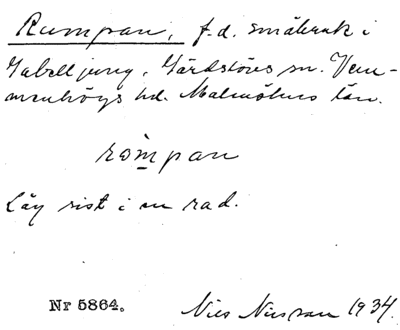 Rumpan, f.d. småbruk i
Gabelljung, Gärdslövs sn. Vem-
menhögs hd. Malmöhus län.
rom̀pan
Låg sist i en rad.
Nr 5864.
Nils Nilsson 1934.